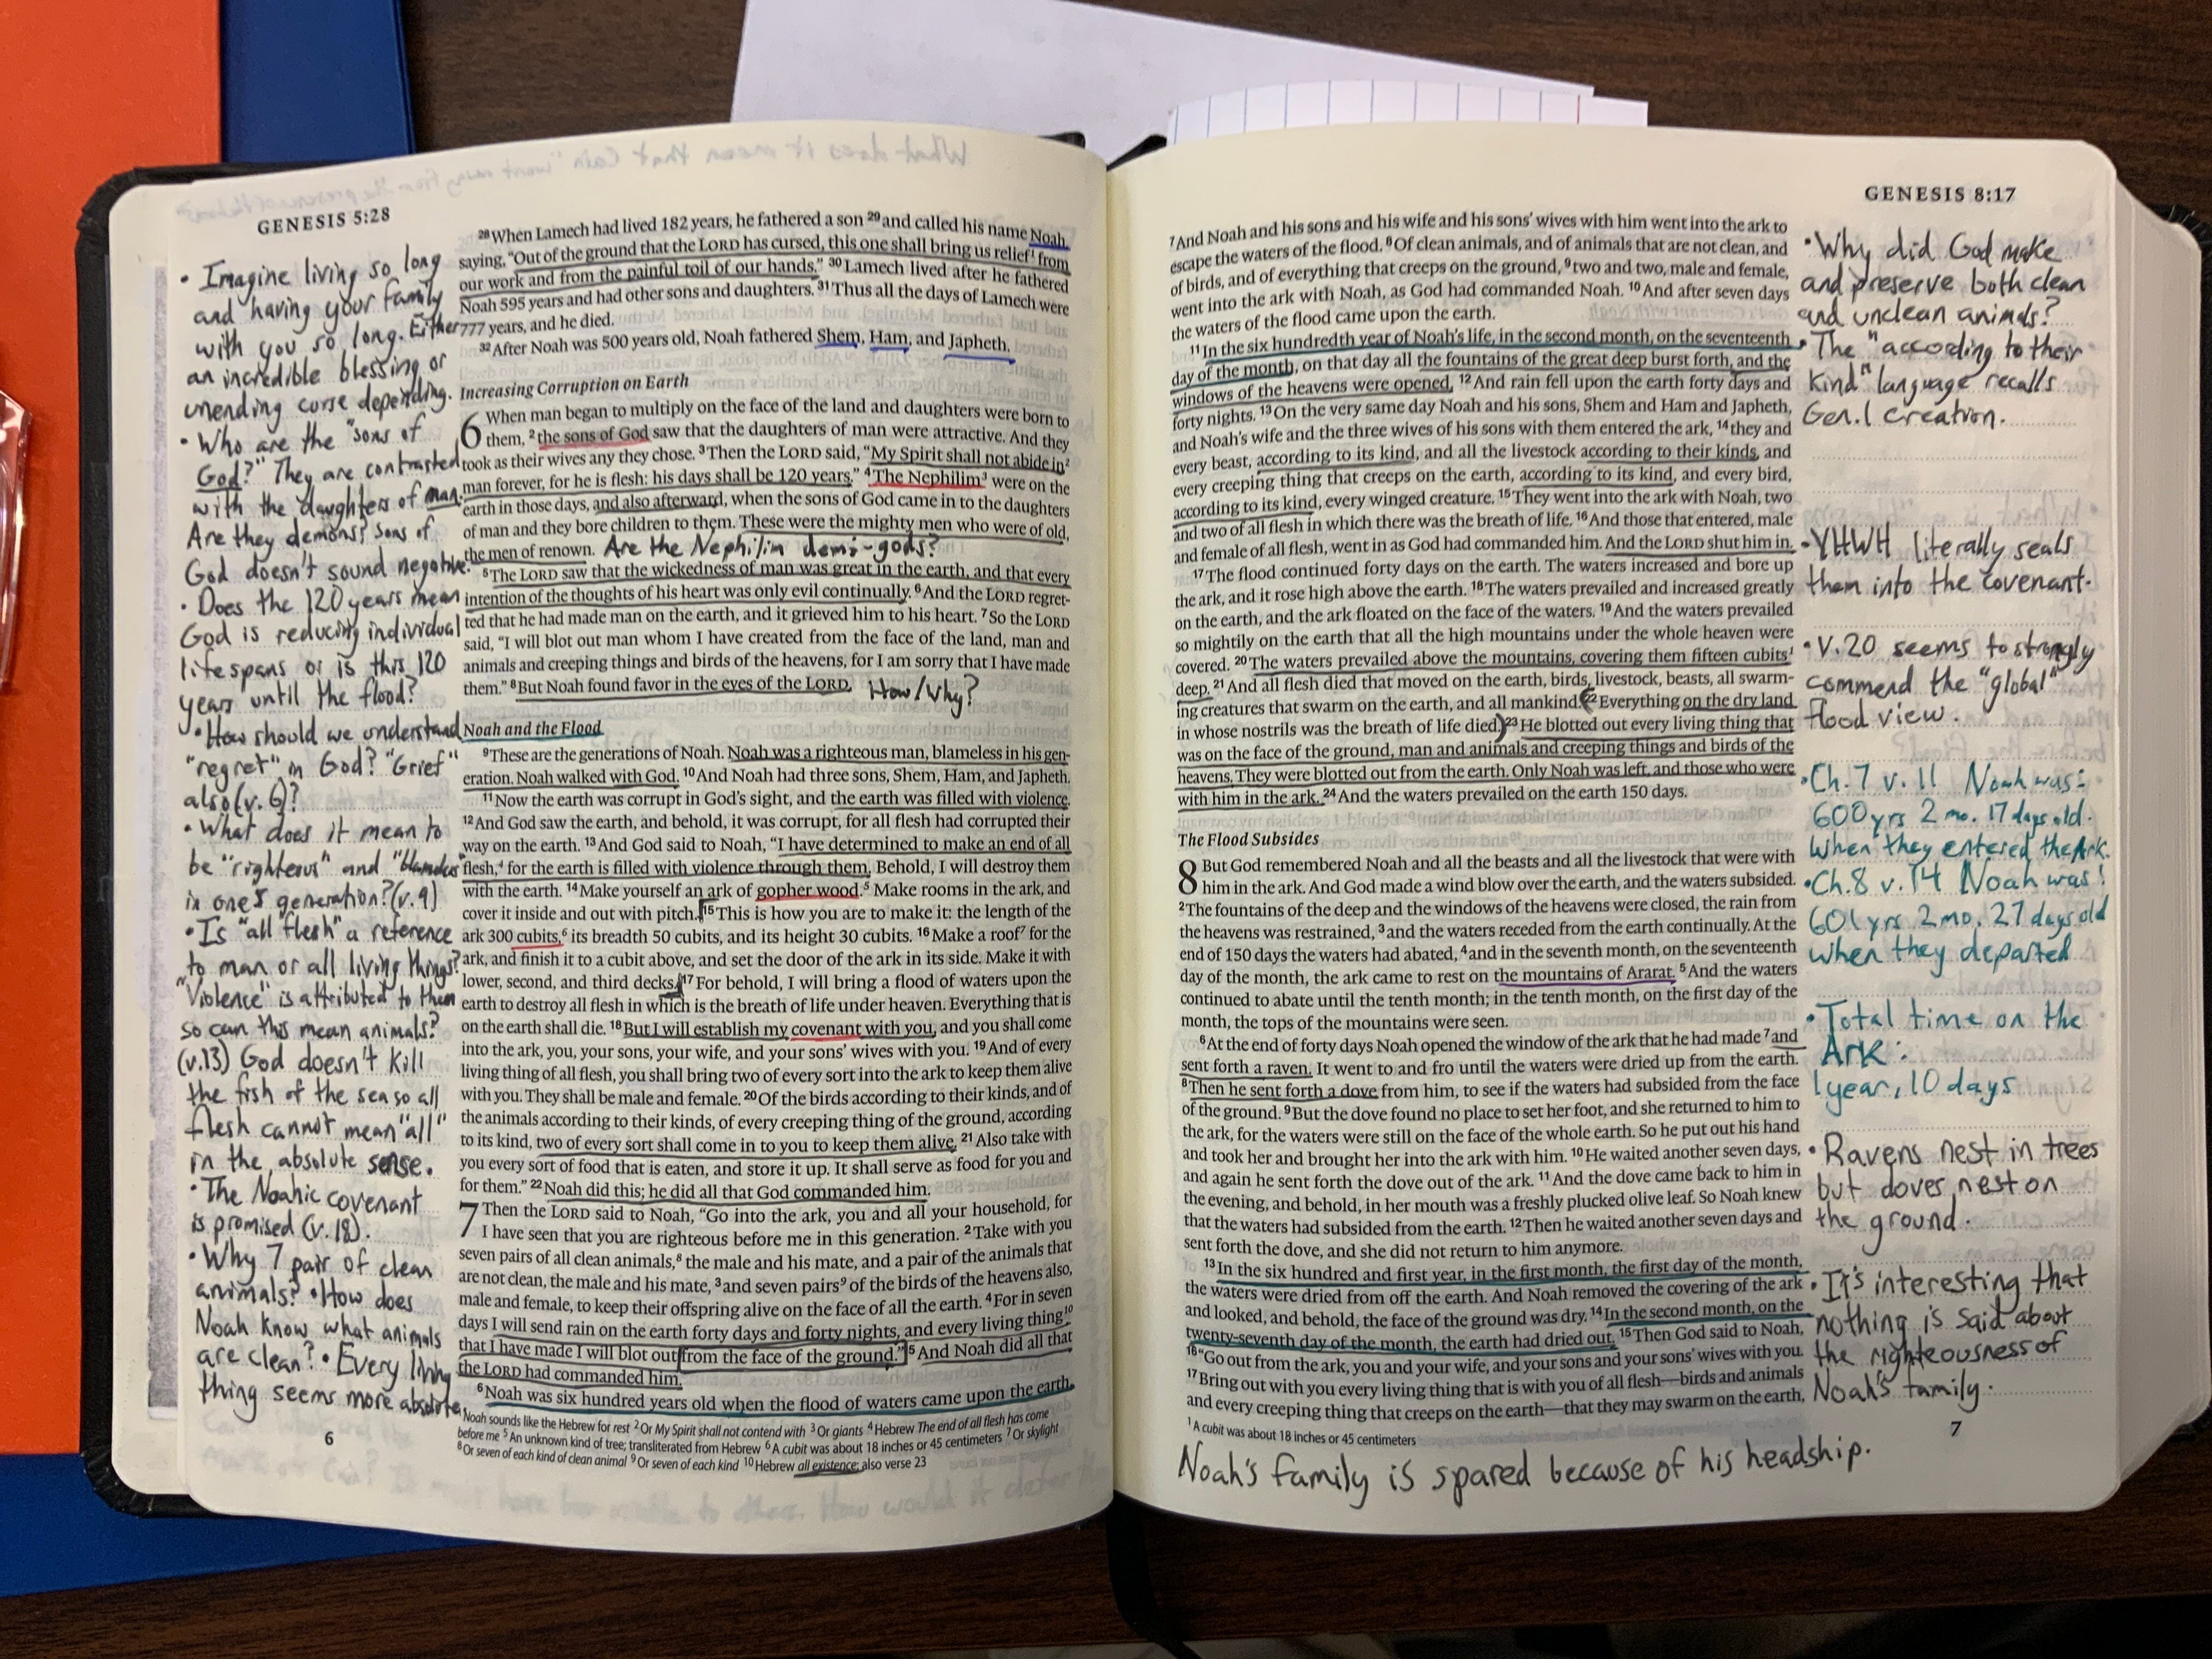 GENESIS 5:28
• Imagine living so long
and having your family
with you so long. Either
an incredible blessing or
unending curse depending.
• Who are the "sons of
God?" They are contrasted
with the daughters of man.
Are they demons? Sons of
God doesn't sound negative.
• Does the 120 years mean
God is reducing individual
lifespans or is this 120
years until the flood?
• How should we understand
"regret" in God? "Grief"
also (v. 6)?
• What does it mean to
be "righteous" and "blameless"
in one's generation? (v. 9)
• Is "all flesh" a reference
to man or all living things?
"Violence" is attributed to them
so can this mean animals?
(v.13) God doesn't kill
the fish of the sea so all
flesh cannot mean "all"
in the absolute sense.
• The Noahic covenant
is promised (v. 18).
• Why 7 pair of clean
animals? • How does
Noah know what animals
are clean? • Every living
thing seems more absolute.
6
28 When Lamech had lived 182 years, he fathered a son 29 and called his name Noah,
saying, "Out of the ground that the LORD has cursed, this one shall bring us relief1 from
our work and from the painful toil of our hands." 30 Lamech lived after he fathered
Noah 595 years and had other sons and daughters. 31 Thus all the days of Lamech were
777 years, and he died.
32 After Noah was 500 years old, Noah fathered Shem, Ham, and Japheth.
Increasing Corruption on Earth
6 When man began to multiply on the face of the land and daughters were born to
them, 2 the sons of God saw that the daughters of man were attractive. And they
took as their wives any they chose. 3 Then the LORD said, "My Spirit shall not abide in2
man forever, for he is flesh: his days shall be 120 years." 4 The Nephilim3 were on the
earth in those days, and also afterward, when the sons of God came in to the daughters
of man and they bore children to them. These were the mighty men who were of old,
the men of renown. Are the Nephilim demi-gods?
5 The LORD saw that the wickedness of man was great in the earth, and that every
intention of the thoughts of his heart was only evil continually. 6 And the LORD regret-
ted that he had made man on the earth, and it grieved him to his heart. 7 So the LORD
said, "I will blot out man whom I have created from the face of the land, man and
animals and creeping things and birds of the heavens, for I am sorry that I have made
them." 8 But Noah found favor in the eyes of the LORD. How/why?
Noah and the Flood
9 These are the generations of Noah. Noah was a righteous man, blameless in his gen-
eration. Noah walked with God. 10 And Noah had three sons, Shem, Ham, and Japheth.
11 Now the earth was corrupt in God's sight, and the earth was filled with violence.
12 And God saw the earth, and behold, it was corrupt, for all flesh had corrupted their
way on the earth. 13 And God said to Noah, "I have determined to make an end of all
flesh,4 for the earth is filled with violence through them. Behold, I will destroy them
with the earth. 14 Make yourself an ark of gopher wood.5 Make rooms in the ark, and
cover it inside and out with pitch. 15 This is how you are to make it: the length of the
ark 300 cubits,6 its breadth 50 cubits, and its height 30 cubits. 16 Make a roof7 for the
ark, and finish it to a cubit above, and set the door of the ark in its side. Make it with
lower, second, and third decks. 17 For behold, I will bring a flood of waters upon the
earth to destroy all flesh in which is the breath of life under heaven. Everything that is
on the earth shall die. 18 But I will establish my covenant with you, and you shall come
into the ark, you, your sons, your wife, and your sons' wives with you. 19 And of every
living thing of all flesh, you shall bring two of every sort into the ark to keep them alive
with you. They shall be male and female. 20 Of the birds according to their kinds, and of
the animals according to their kinds, of every creeping thing of the ground, according
to its kind, two of every sort shall come in to you to keep them alive. 21 Also take with
you every sort of food that is eaten, and store it up. It shall serve as food for you and
for them." 22 Noah did this; he did all that God commanded him.
7 Then the LORD said to Noah, "Go into the ark, you and all your household, for
I have seen that you are righteous before me in this generation. 2 Take with you
seven pairs of all clean animals,8 the male and his mate, and a pair of the animals that
are not clean, the male and his mate, 3 and seven pairs9 of the birds of the heavens also,
male and female, to keep their offspring alive on the face of all the earth. 4 For in seven
days I will send rain on the earth forty days and forty nights, and every living thing10
that I have made I will blot out from the face of the ground." 5 And Noah did all that
the LORD had commanded him.
6 Noah was six hundred years old when the flood of waters came upon the earth.
Noah sounds like the Hebrew for rest 2 Or My Spirit shall not contend with 3 Or giants 4 Hebrew The end of all flesh has come
before me 5 An unknown kind of tree; transliterated from Hebrew 6 A cubit was about 18 inches or 45 centimeters 7 Or skylight
8 Or seven of each kind of clean animal 9 Or seven of each kind 10 Hebrew all existence; also verse 23
GENESIS 8:17
7 And Noah and his sons and his wife and his sons' wives with him went into the ark to
escape the waters of the flood. 8 Of clean animals, and of animals that are not clean, and
of birds, and of everything that creeps on the ground, 9 two and two, male and female,
went into the ark with Noah, as God had commanded Noah. 10 And after seven days
the waters of the flood came upon the earth.
11 In the six hundredth year of Noah's life, in the second month, on the seventeenth
day of the month, on that day all the fountains of the great deep burst forth, and the
windows of the heavens were opened. 12 And rain fell upon the earth forty days and
forty nights. 13 On the very same day Noah and his sons, Shem and Ham and Japheth,
and Noah's wife and the three wives of his sons with them entered the ark, 14 they and
every beast, according to its kind, and all the livestock according to their kinds, and
every creeping thing that creeps on the earth, according to its kind, and every bird,
according to its kind, every winged creature. 15 They went into the ark with Noah, two
and two of all flesh in which there was the breath of life. 16 And those that entered, male
and female of all flesh, went in as God had commanded him. And the LORD shut him in.
17 The flood continued forty days on the earth. The waters increased and bore up
the ark, and it rose high above the earth. 18 The waters prevailed and increased greatly
on the earth, and the ark floated on the face of the waters. 19 And the waters prevailed
so mightily on the earth that all the high mountains under the whole heaven were
covered. 20 The waters prevailed above the mountains, covering them fifteen cubits1
deep. 21 And all flesh died that moved on the earth, birds, livestock, beasts, all swarm-
ing creatures that swarm on the earth, and all mankind. (22 Everything on the dry land
in whose nostrils was the breath of life died.) 23 He blotted out every living thing that
was on the face of the ground, man and animals and creeping things and birds of the
heavens. They were blotted out from the earth. Only Noah was left, and those who were
with him in the ark. 24 And the waters prevailed on the earth 150 days.
The Flood Subsides
8 But God remembered Noah and all the beasts and all the livestock that were with
him in the ark. And God made a wind blow over the earth, and the waters subsided.
2 The fountains of the deep and the windows of the heavens were closed, the rain from
the heavens was restrained, 3 and the waters receded from the earth continually. At the
end of 150 days the waters had abated, 4 and in the seventh month, on the seventeenth
day of the month, the ark came to rest on the mountains of Ararat. 5 And the waters
continued to abate until the tenth month; in the tenth month, on the first day of the
month, the tops of the mountains were seen.
6 At the end of forty days Noah opened the window of the ark that he had made 7 and
sent forth a raven. It went to and fro until the waters were dried up from the earth.
8 Then he sent forth a dove from him, to see if the waters had subsided from the face
of the ground. 9 But the dove found no place to set her foot, and she returned to him to
the ark, for the waters were still on the face of the whole earth. So he put out his hand
and took her and brought her into the ark with him. 10 He waited another seven days,
and again he sent forth the dove out of the ark. 11 And the dove came back to him in
the evening, and behold, in her mouth was a freshly plucked olive leaf. So Noah knew
that the waters had subsided from the earth. 12 Then he waited another seven days and
sent forth the dove, and she did not return to him anymore.
13 In the six hundred and first year, in the first month, the first day of the month,
the waters were dried from off the earth. And Noah removed the covering of the ark
and looked, and behold, the face of the ground was dry. 14 In the second month, on the
twenty-seventh day of the month, the earth had dried out. 15 Then God said to Noah,
16 "Go out from the ark, you and your wife, and your sons and your sons' wives with you.
17 Bring out with you every living thing that is with you of all flesh—birds and animals
and every creeping thing that creeps on the earth—that they may swarm on the earth,
1 A cubit was about 18 inches or 45 centimeters
Noah's family is spared because of his headship.
• Why did God make
and preserve both clean
and unclean animals?
• The "according to their
kind" language recalls
Gen. 1 creation.
• YHWH literally seals
them into the covenant.
• V.20 seems to strongly
commend the "global"
flood view.
• Ch. 7 v. 11 Noah was:
600 yrs 2 mo. 17 days old.
when they entered the Ark.
• Ch. 8 v. 14 Noah was:
601 yrs 2 mo. 27 days old
when they departed
• Total time on the
Ark:
1 year, 10 days
• Ravens nest in trees
but doves nest on
the ground.
• It's interesting that
nothing is said about
the righteousness of
Noah's family.
7